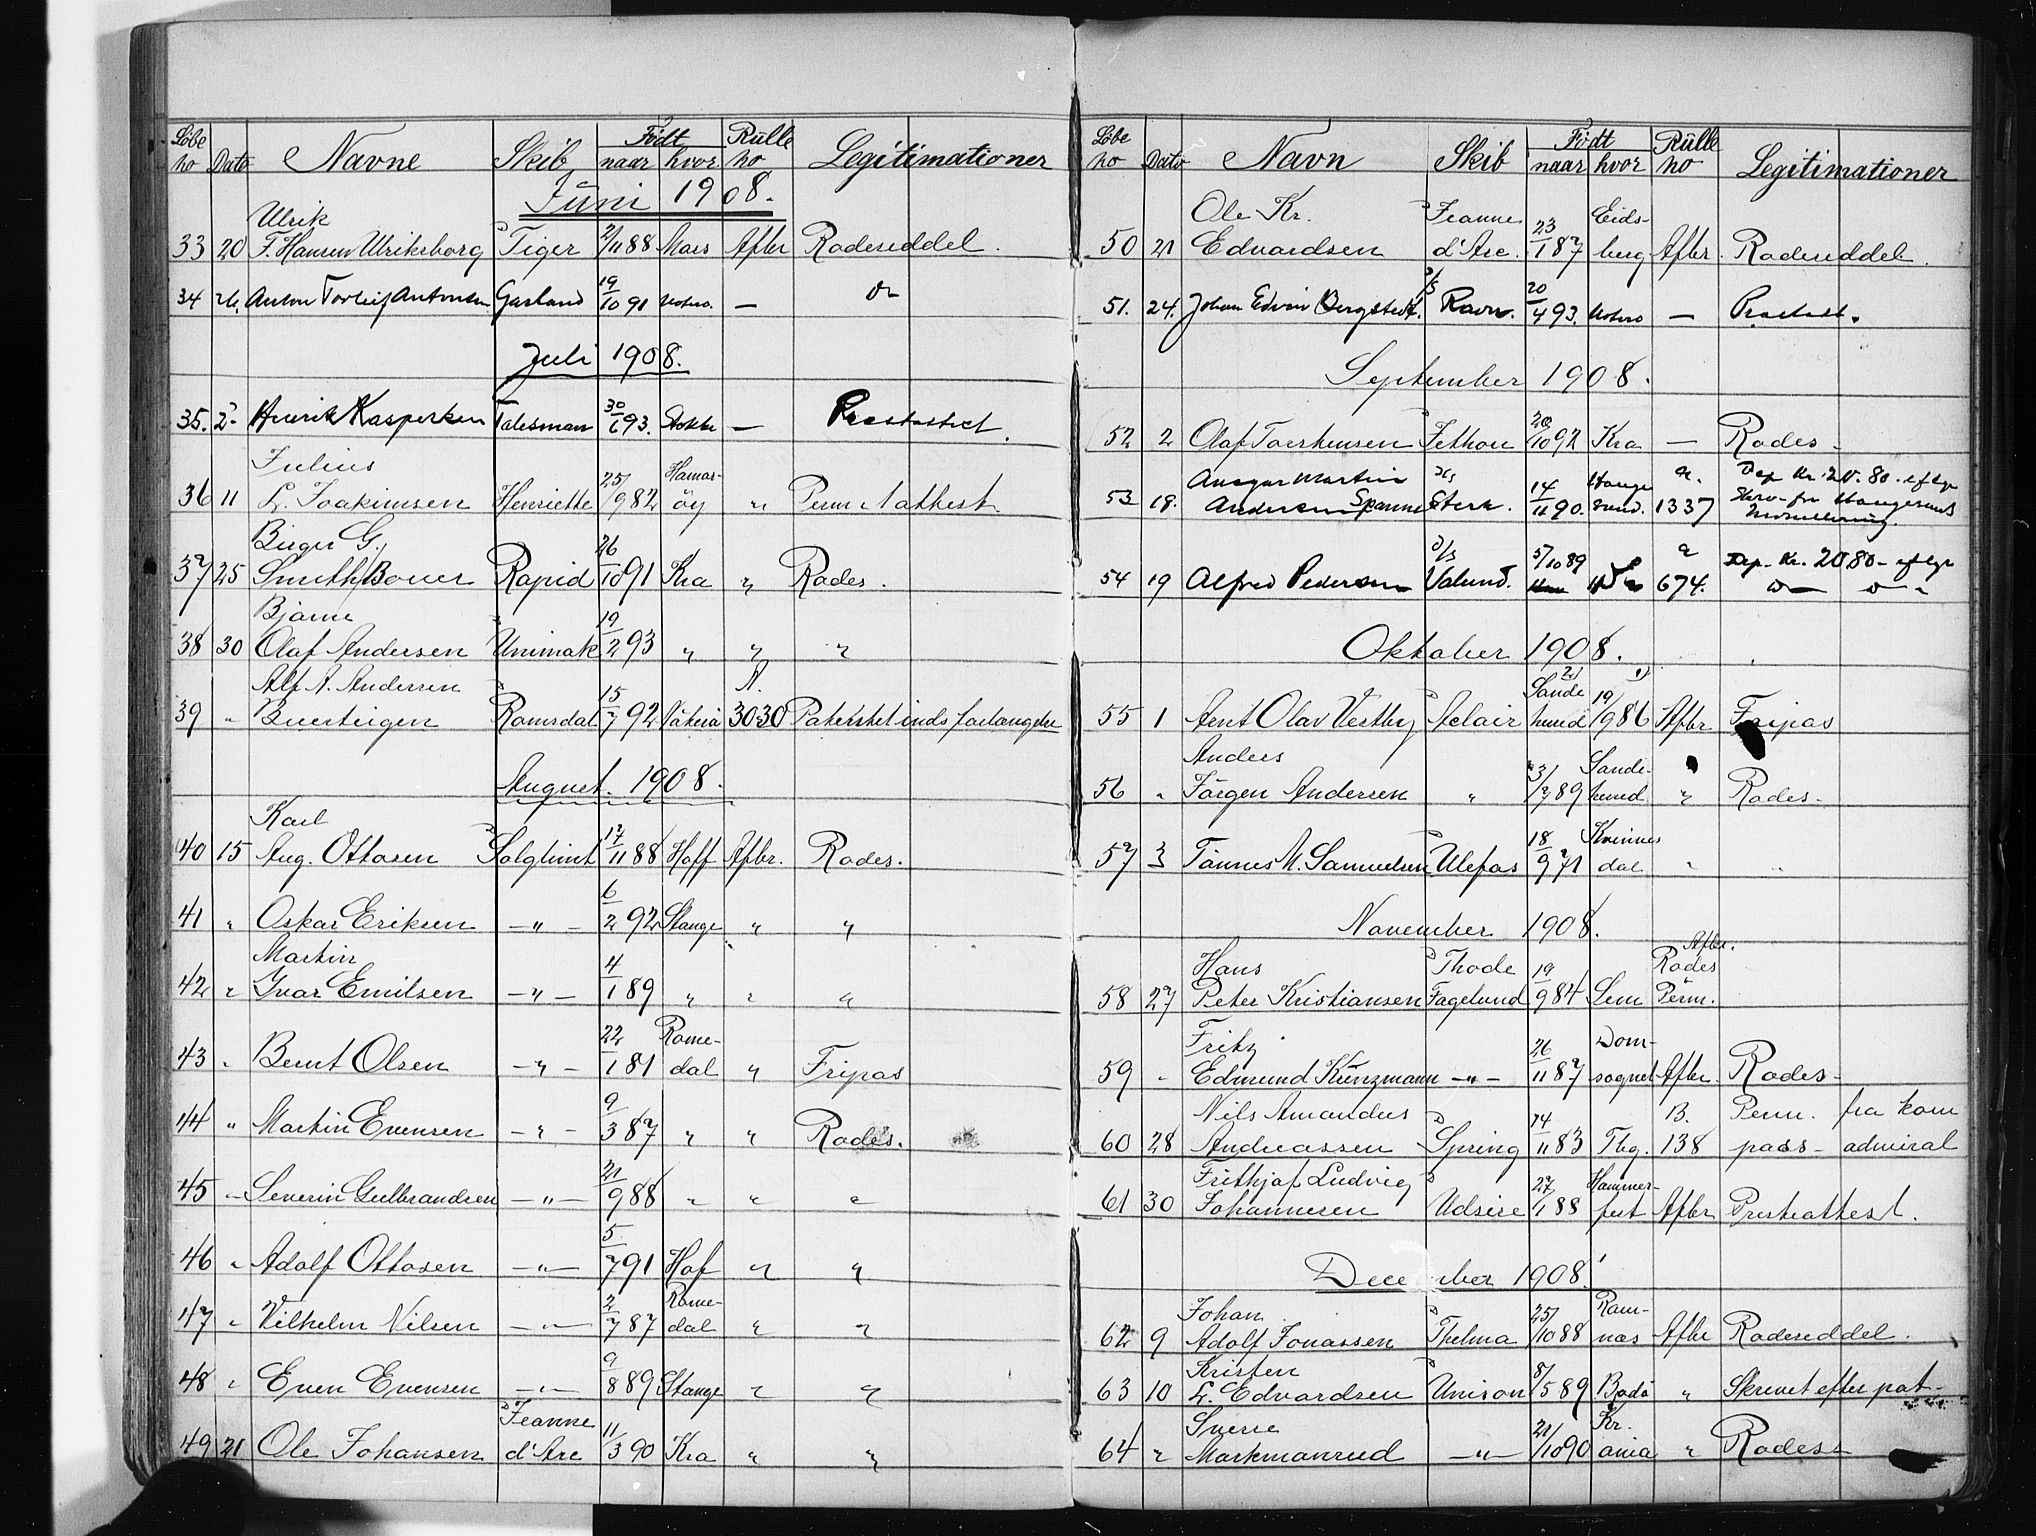 Løbe no Dato Navne Skib Født naar hvor Rulle no Legitimationer
Juni 1908.
Ulrik
33 20 F. Hansen Ulriksborg Tiger 2/11 88 Moss Afbr Rodeseddel.
34 26. Anton Torleif Antonsen Garland 19/10 91 —
Juli 1908.
35. 2 Henrik Kaspersen Talesman 30/6 93. Stokke — Prestattest.
Julius Hamar-
36 11 L. Joakimsen Henriette 25/9 82 öy " Perm. Nattest
Birger G.
37 25 Smith/Bover Rapid 26/10 91 Kra " Rodes.
Bjarne
38 30 Olaf Andersen Unimak 19/2 93 " " "
Alf A. Andersen A.
39 " Buerteigen Romsdal 15/7 92 3030
August. 1908.
Karl
40 15 Aug. Ottosen Solglimt 17/11 88 Hoff Afbr. Rodes.
41 " Oskar Eriksen —"— 6/2 92 Stange " "
Martin
42 " Ivar Emilsen —"— 4/1 89 " " "
Rome-
43 " Bernt Olsen —"— 22/1 81 dal " Fripas
44 " Martin Evensen —"— 9/3 87 " " Rodes.
45 " Severin Gulbrandsen —"— 21/9 88 " " "
46 " Adolf Ottosen —"— 5/7 91 Hof " "
Rome-
47 " Vilhelm Nilsen —"— 2/7 87 dal " "
48 " Even Evensen —"— 9/8 89 Stange " "
Jeanne
49 21 Ole Johansen d'Arc 11/3 90 Kra " "
Løbe no Dato Navn Skib Født naar hvor Rulle no Legitimationer
Ole Kr. Jeanne Eids-
50 21 Edvardsen d'Arc. 23/1 87 berg Afbr. Rodeseddel.
51. 24. Johan Edvin Bergstedt. Ravn. 20/4 93. — Prestatt.
September 1908.
52 2 Olaf Torstensen Jethou 20/10 92 Kra — Rodes.
Ansgar Martin D/S Hauge a. Dep. Kr. 20.80. eftgr
53 18. Andersen Spanne Sterk. 14/11 90. sund. 1337 Skriv. fra Haugesunds
Innrullering.
D/S 5/10 89 a Dep. Kr. 20.80 - eftgr
54 19 Alfred Pedersen Valund. 674. do do
Oktober 1908.
2) Sande 1)
55 1 Arnt Olav Vestby Aclair herred 19/9 86 Afbr Fripas
Anders Sande-
56 " Jörgen Andersen " 3/7 89 herred " Rodes.
Kvinnes
57 3 Tönnes M. Samuelsen Ulefos 18/9 71 dal " "
November 1908.
Afbr.
Hans Thode Rodes
58 27 Peter Kristiansen Fagelund 19/9 84 Sem Perm.
Fritz Dom-
59 " Edmund Künzmann —"— 26/11 87 sognet Afbr. Rodes.
Nils Amandus B. Perm. fra kom
60 28 Andreassen Spring 14/11 83 Tbg. 138 pass- admiral
Frithjof Ludvig Hammer-
61 30 Johannesen Udsire 27/1 88 fest Afbr Presteattest.
December 1908.
Johan Ram-
62 9 Adolf Jonassen Thelma 25/10 88 næs Afbr Rodeseddel.
Kristen
63 10 L. Edvardsen Unison 8/5 89 Bodö " Skrevet efter pat-
Sverre Kr.
64 " Markmanrud —"— 21/10 90 ania " Rodess